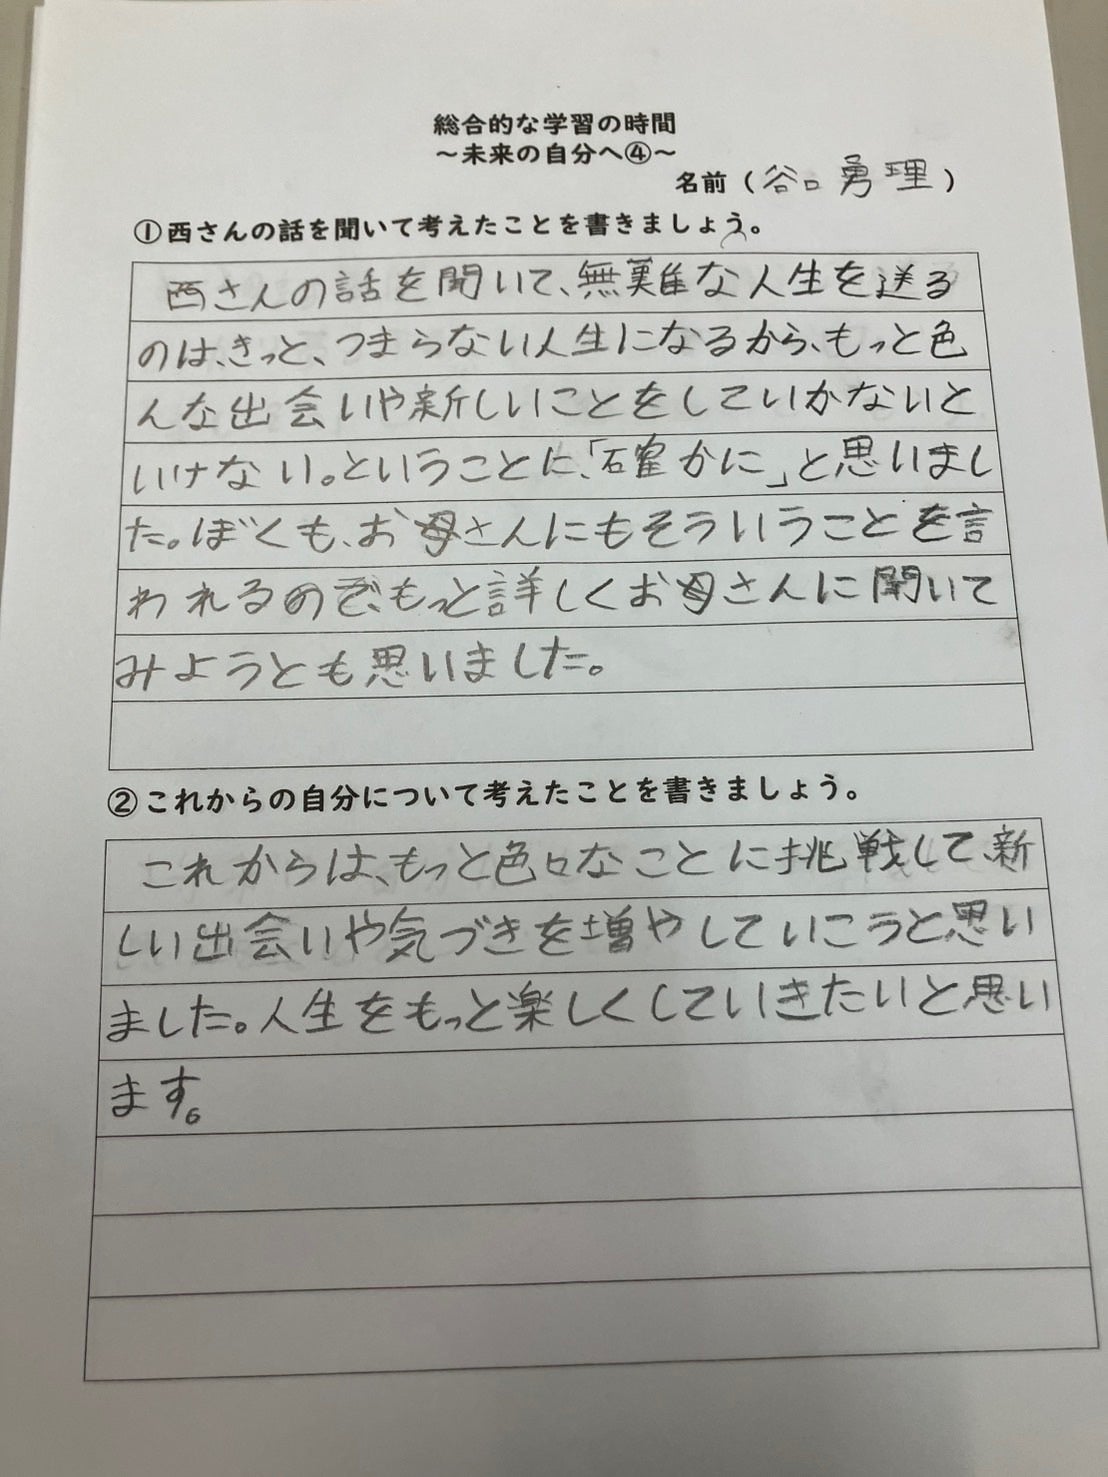 総合的な学習の時間
～未来の自分へ④～
名前（谷口勇理）
①西さんの話を聞いて考えたことを書きましょう。
西さんの話を聞いて、無難な人生を送る
のは、きっと、つまらない人生になるから、もっと色
んな出会いや新しいことをしていかないと
いけない。ということに、「確かに」と思いまし
た。ぼくも、お母さんにもそういうことを言
われるので、もっと詳しくお母さんに聞いて
みようとも思いました。
②これからの自分について考えたことを書きましょう。
これからは、もっと色々なことに挑戦して、新
しい出会いや気づきを増やしていこうと思い
ました。人生をもっと楽しくしていきたいと思い
ます。